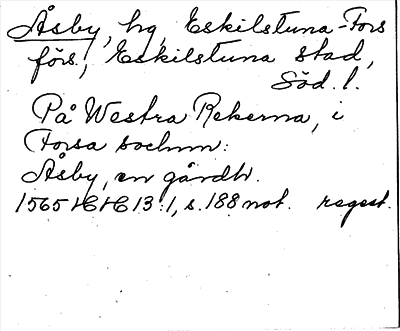 Åsby, hg, Eskilstuna-Fors
förs., Eskilstuna stad,
Söd. l.
På Westra Rekerna, i
Forsa sochnn:
Åsby, en gårdh.
1565 HH 13:1, s. 188 not. regest.